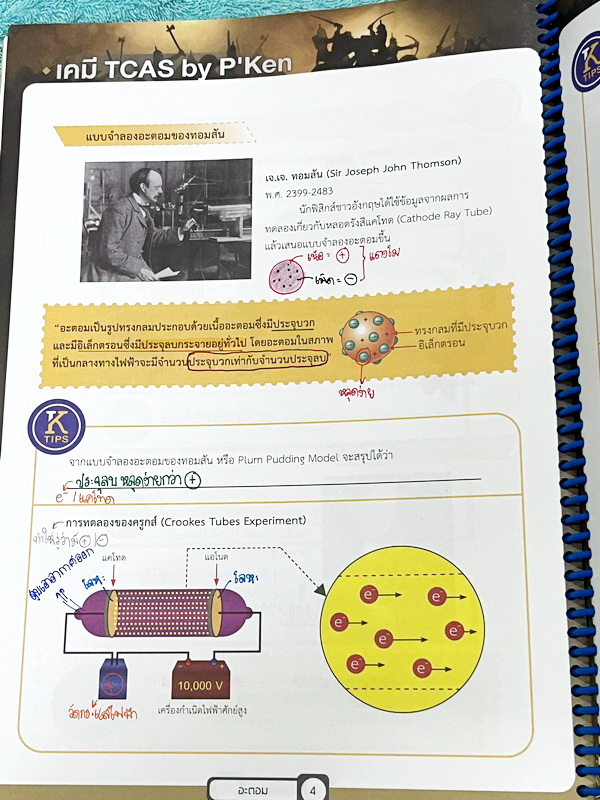 เคมี TCAS by P'Ken
K
TIPS
แบบจำลองอะตอมของทอมสัน
เจ.เจ. ทอมสัน (Sir Joseph John Thomson)
พ.ศ. 2399-2483
นักฟิสิกส์ชาวอังกฤษได้ใช้ข้อมูลจากผลการ
ทดลองเกี่ยวกับหลอดรังสีแคโทด (Cathode Ray Tube)
แล้วเสนอแบบจำลองอะตอมขึ้น
เนื้อ = +
เม็ด = -
แตงโม
"อะตอมเป็นรูปทรงกลมประกอบด้วยเนื้ออะตอมซึ่งมีประจุบวก
และมีอิเล็กตรอนซึ่งมีประจุลบกระจายอยู่ทั่วไป โดยอะตอมในสภาพ
ที่เป็นกลางทางไฟฟ้าจะมีจำนวนประจุบวกเท่ากับจำนวนประจุลบ"
ทรงกลมที่มีประจุบวก
อิเล็กตรอน
หลุดง่าย
K
TIPS
จากแบบจำลองอะตอมของทอมสัน หรือ Plum Pudding Model จะสรุปได้ว่า
ประจุลบ หลุดง่ายกว่า +
e⁻ / แคโทด
การทดลองของครูกส์ (Crookes Tubes Experiment)
ทำให้รู้ว่ามี + -
แคโทด
แอโนด
โลหะ
โลหะ
e⁻
e⁻
e⁻
e⁻
e⁻
e⁻
e⁻
10,000 V
วัดกระแสไฟฟ้า
เครื่องกำเนิดไฟฟ้าศักย์สูง
อะตอม
4